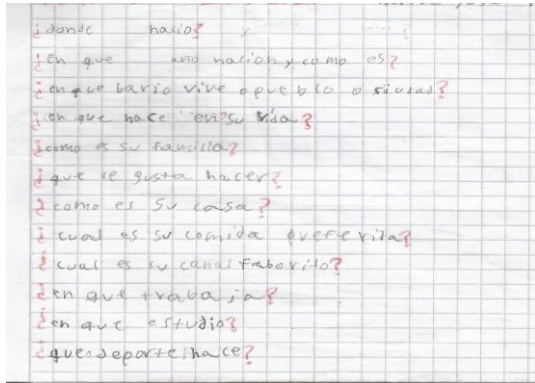 ¿donde nacio? y
¿en que año nacion y como es?
¿en que bario vive o pueblo o siudad?
¿en que hace en su vida?
¿como es su familia?
¿que le gusta hacer?
¿como es su casa?
¿cual es su comida preferida?
¿cual es su canal faborito?
¿en que trabaja?
¿en que estudio?
¿que deporte hace?